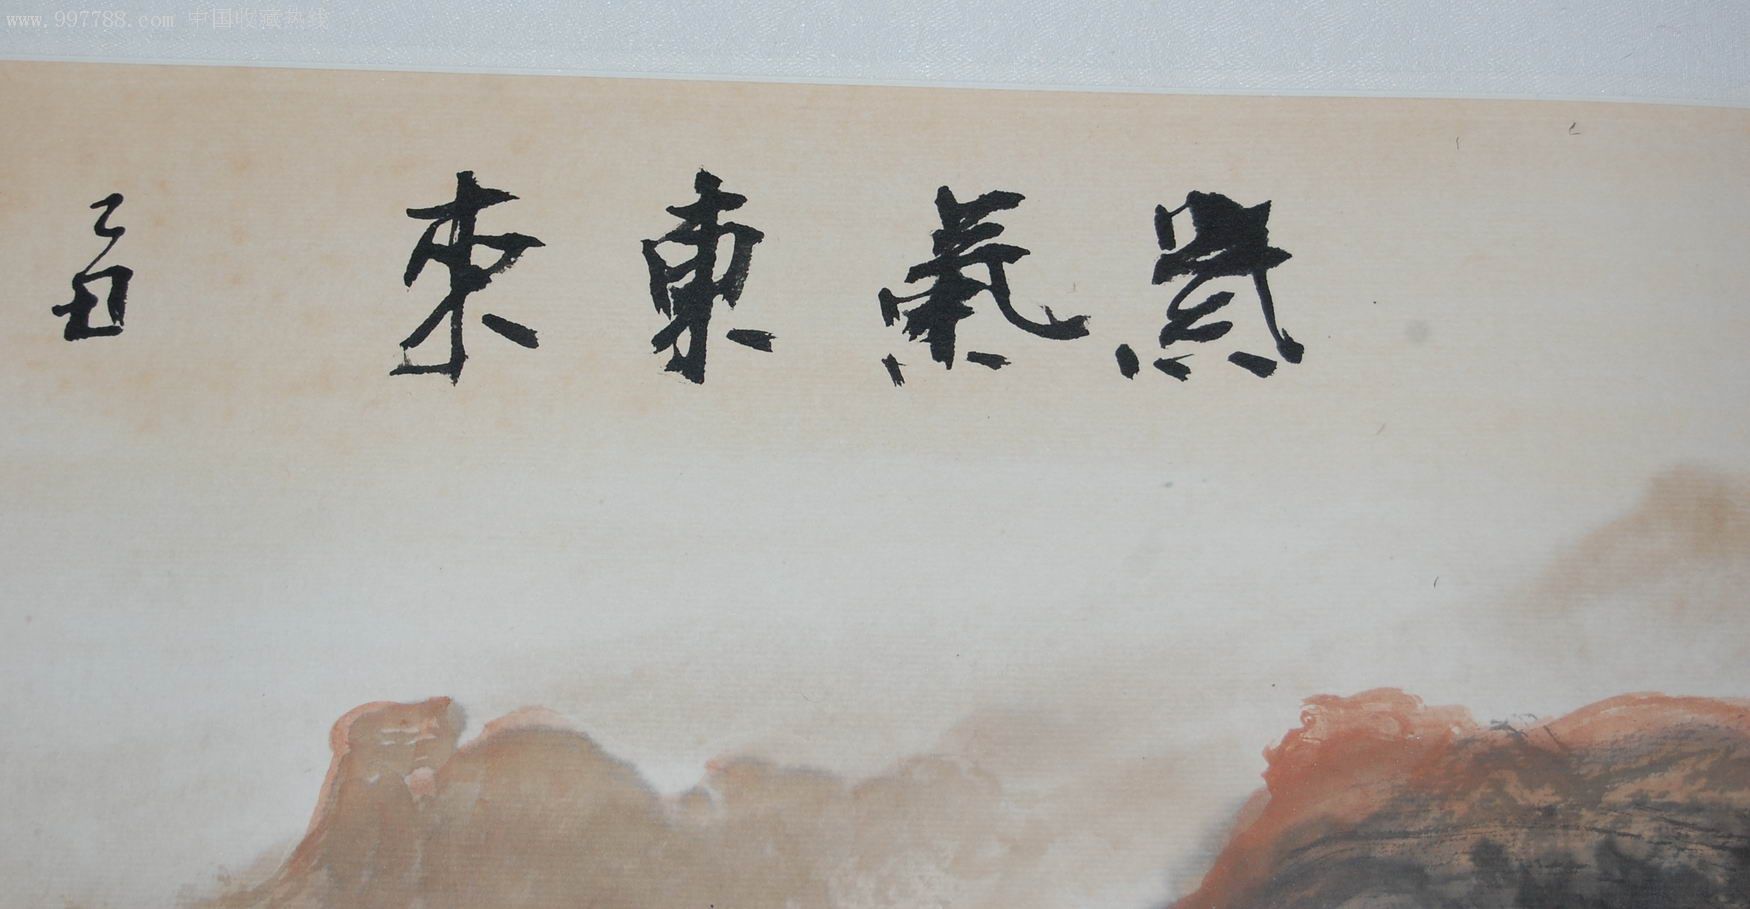 www.997788.com 中国收藏热线
紫氣東來
乙丑